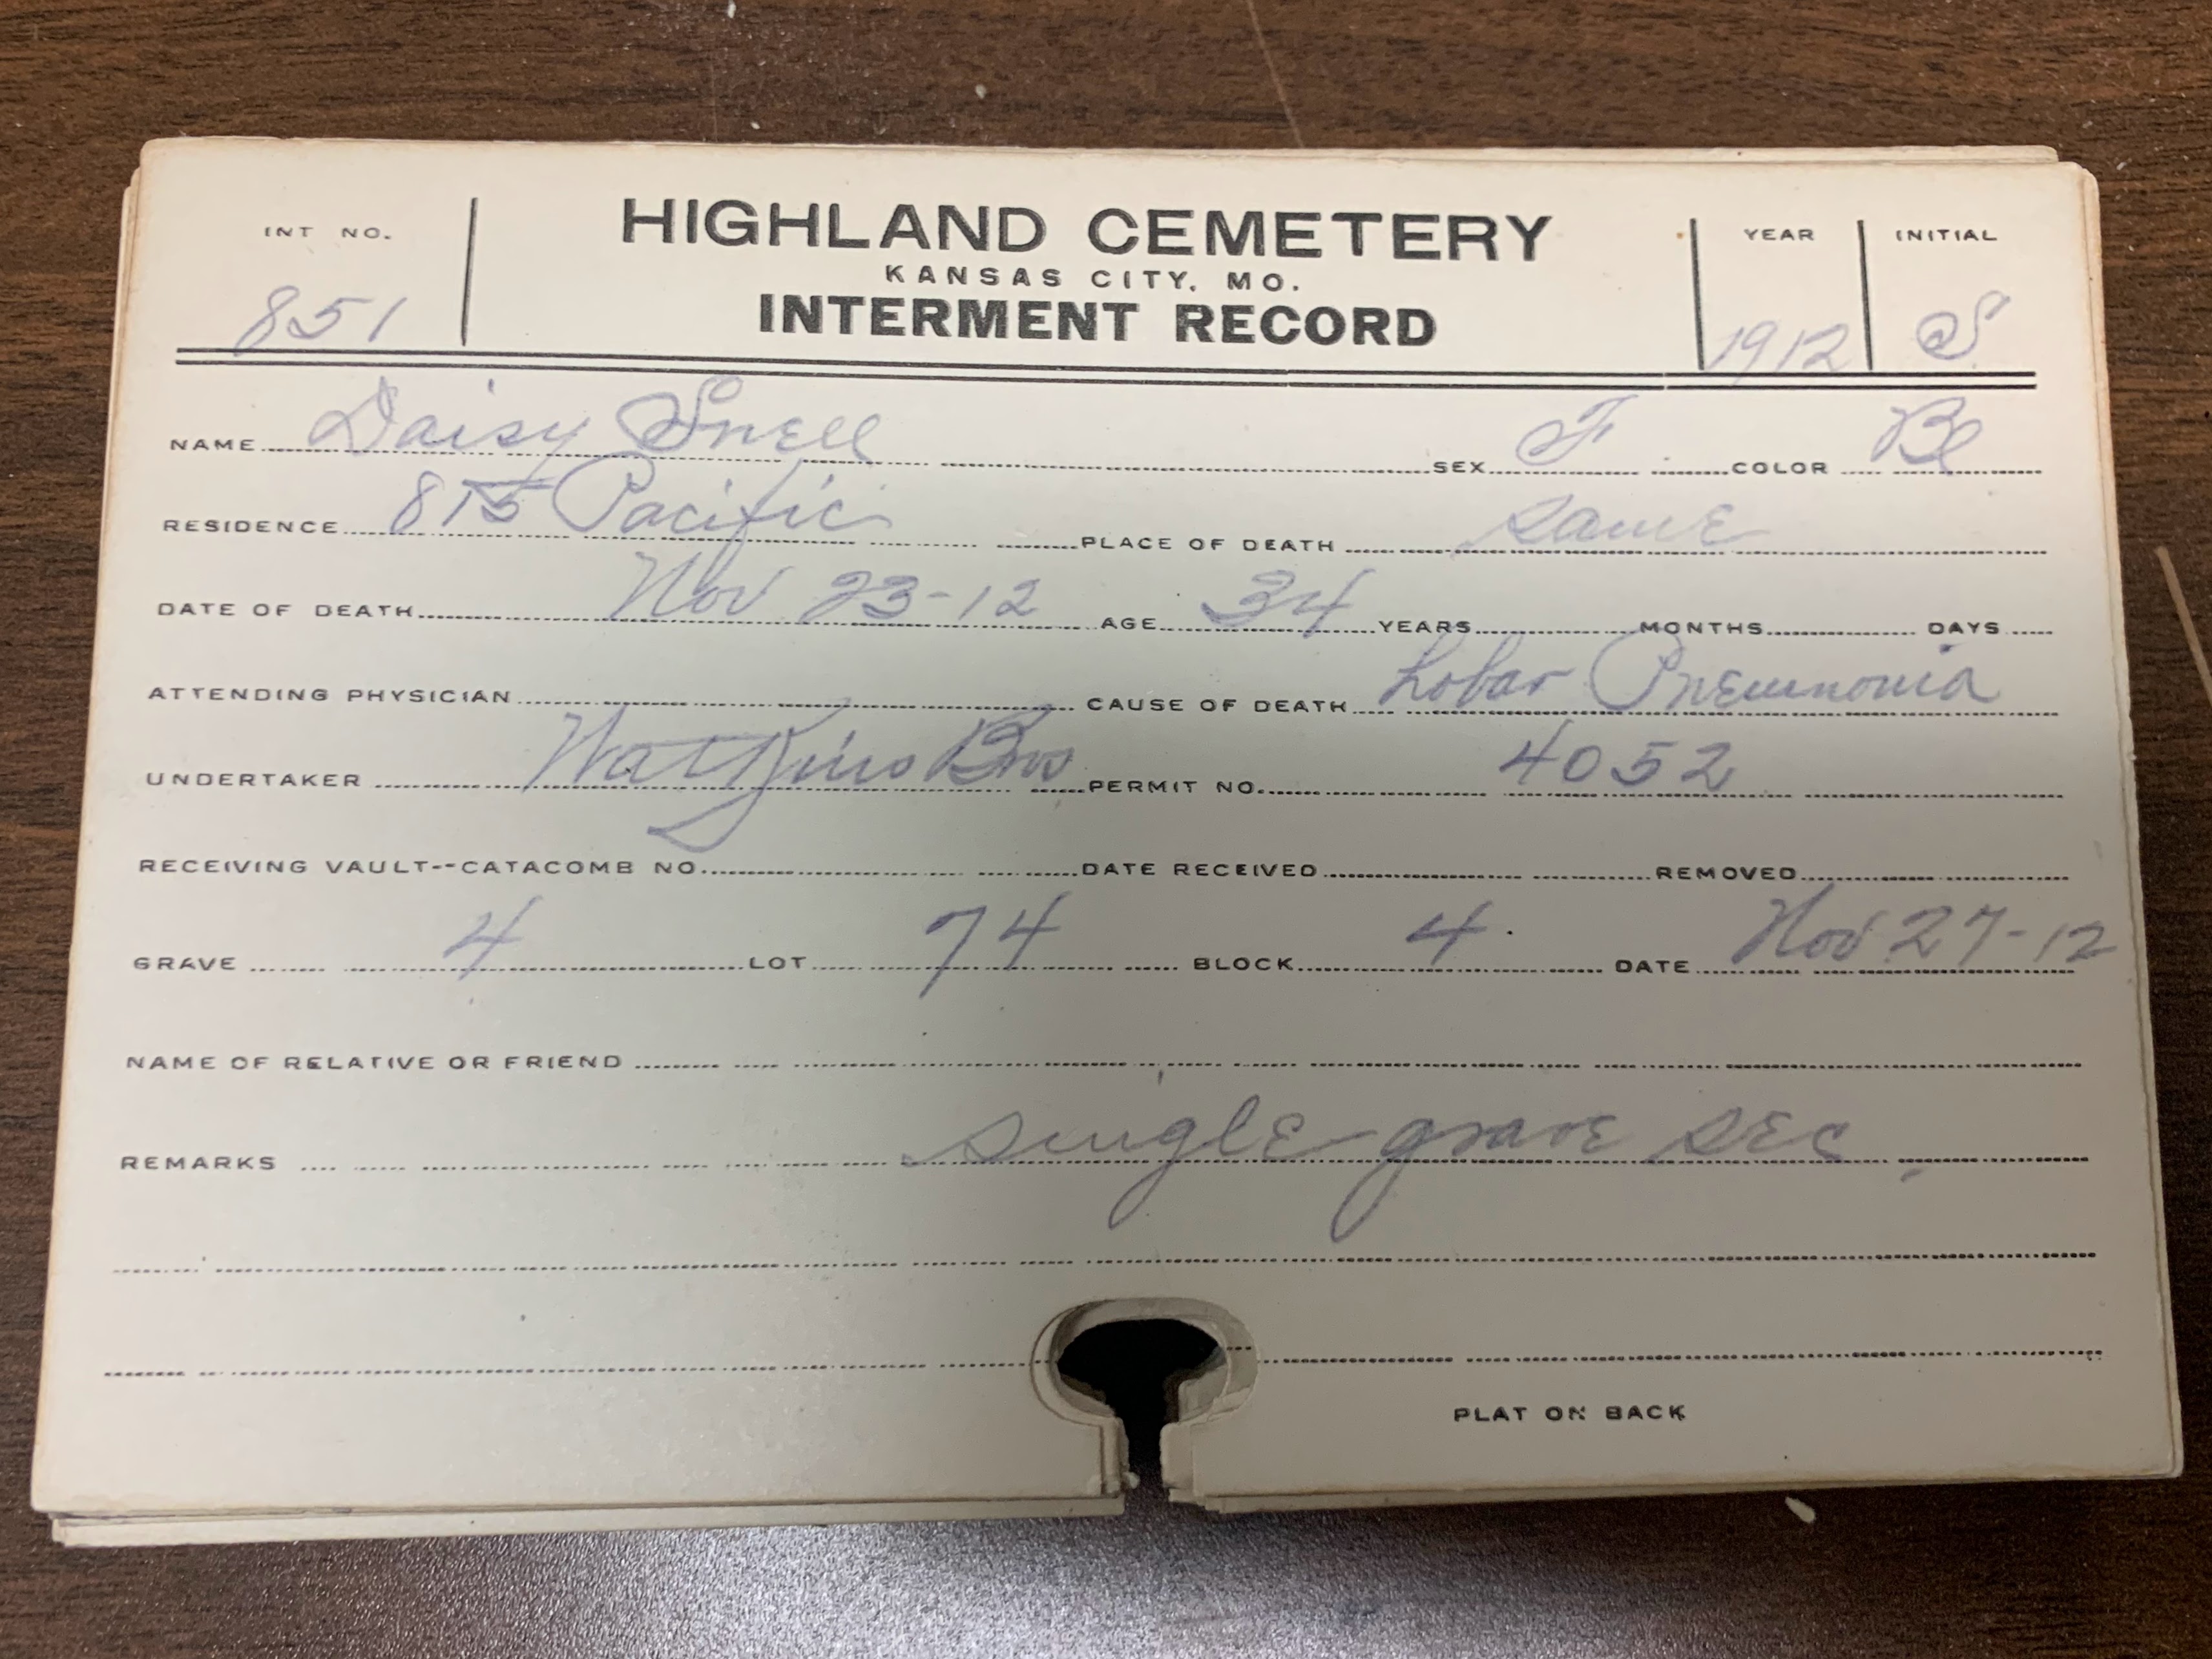 INT NO. HIGHLAND CEMETERY YEAR INITIAL
KANSAS CITY, MO.
851 INTERMENT RECORD 1912 S
NAME Daisy Snell SEX F COLOR Bl
RESIDENCE 815 Pacific PLACE OF DEATH same
DATE OF DEATH Nov 23-12 AGE 34 YEARS MONTHS DAYS
ATTENDING PHYSICIAN CAUSE OF DEATH Lobar Pneumonia
UNDERTAKER Watkins Bros PERMIT NO. 4052
RECEIVING VAULT--CATACOMB NO. DATE RECEIVED REMOVED
GRAVE 4 LOT 74 BLOCK 4 DATE Nov 27-12
NAME OF RELATIVE OR FRIEND
REMARKS single grave sec
PLAT ON BACK